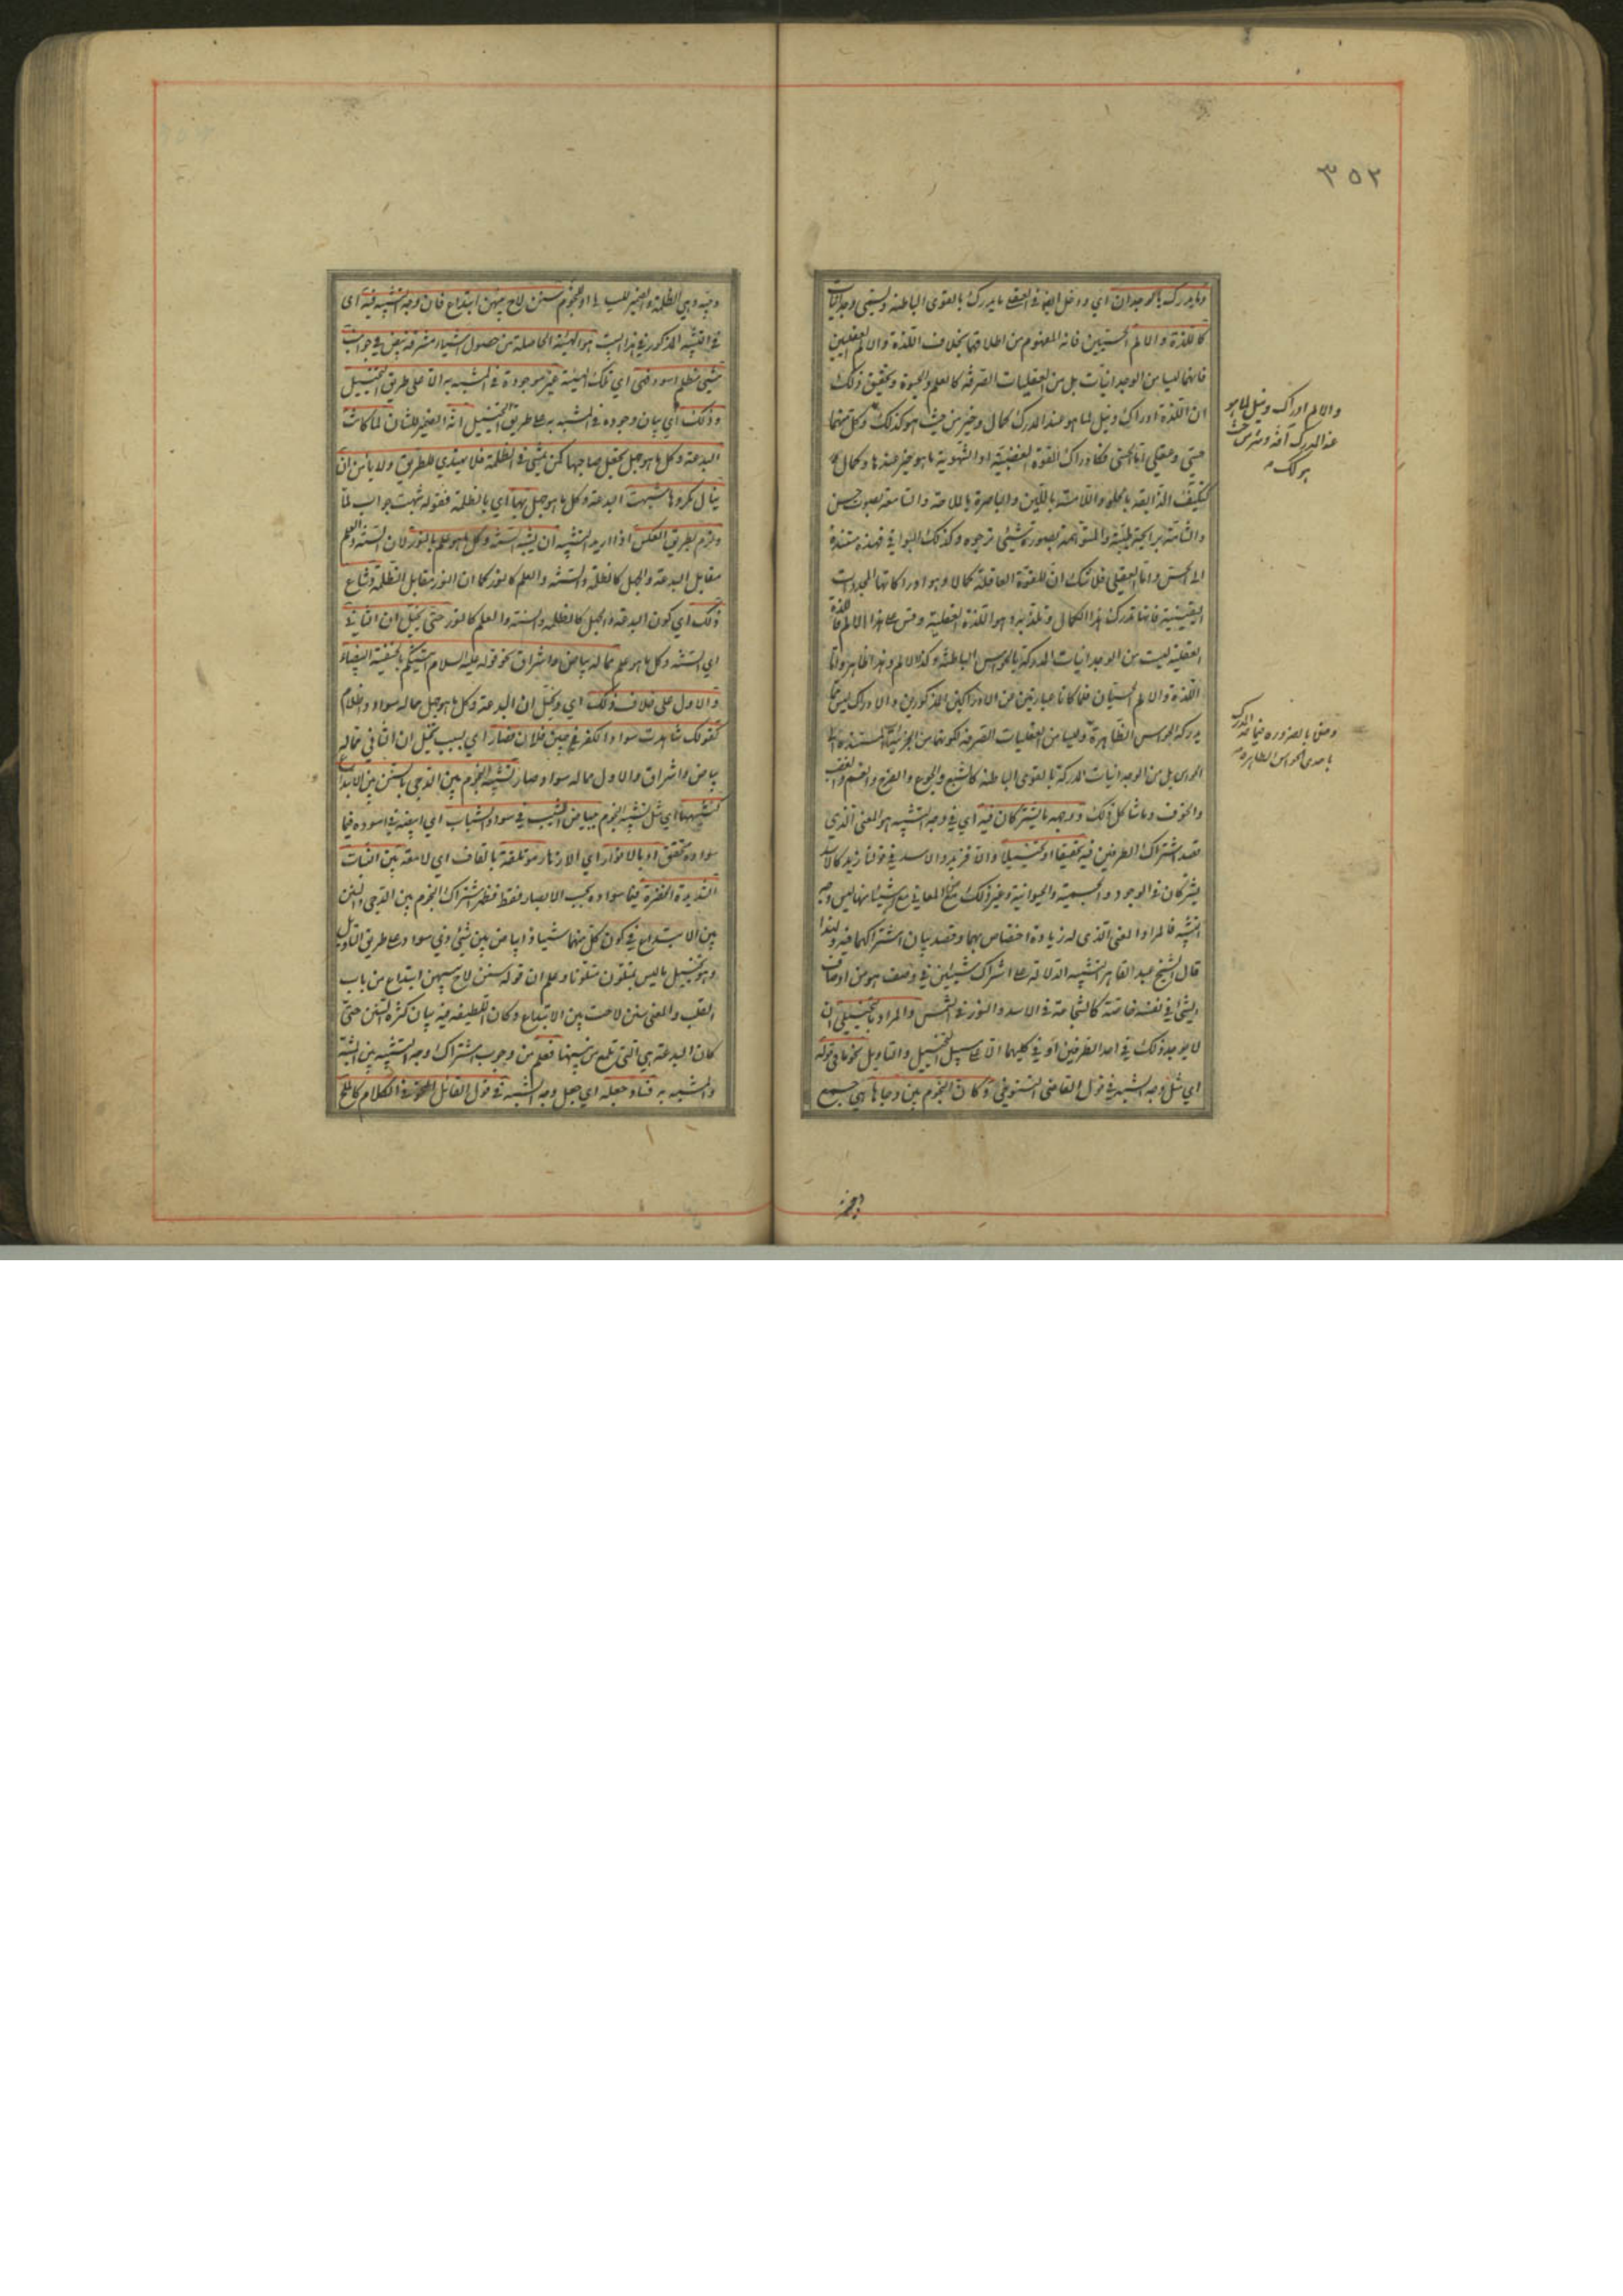 ٣٥٢
وما يدرك بالوجدان اي ودخل ايضا في العقلي ما يدرك بالقوى الباطنة ويسمى وجدانيات
كاللذة والالم الحسيين فانه المفهوم من اطلاقهما بخلاف اللذة والالم العقليين
فانهما ليسا من الوجدانيات بل من العقليات الصرفة كالعلم والحيوة وتحقيق ذلك
ان اللذة ادراك ونيل لما هو عند المدرك كمال وخير من حيث هو كذلك وكل منهما
حسي وعقلي اما الحسي فكادراك القوة الغضبية او الشهوية ما هو خير عندها وكمال
كتكيف الذائقة بالحلو واللامسة باللين والباصرة بالملاحة والسامعة بصوت حسن
والشامة برايحة طيبة والمتوهمة بصورة شيئ ترجوه وكذلك البواقي فهذه مستندة
الى الحس واما العقلي فلا شك ان للقوة العاقلة كمالا وهو ادراكاتها المجردات
اليقينية فانها تدرك هذا الكمال وتلتذ به وهو اللذة العقلية وقس على هذا الالم فاللذة
العقلية ليست من الوجدانيات المدركة بالحواس الباطنة وكذا الالم وهذا ظاهر واما
اللذة والالم الحسيان فلما كانا عبارتين عن الادراكين المذكورين والادراك ليس مما
يدركه الحواس الظاهرة وليسا من العقليات الصرفة لكونهما من الجزئيات المستندة الى
الحواس بل من الوجدانيات المدركة بالقوى الباطنة كالشبع والجوع والفرح والغم والغضب
والخوف وما شاكل ذلك ووجهه ما يشتركان فيه اي في وجه التشبيه هو المعنى الذي
قصد اشتراك الطرفين فيه تحقيقا او تخييلا والا فزيد والاسد في قولنا زيد كالاسد
يشتركان في الوجود والجسمية والحيوانية وغير ذلك من المعاني مع ان شيئا منها ليس وجه
الشبه فالمراد المعنى الذي له زيادة اختصاص بهما وقصد بيان اشتراكهما فيه ولهذا
قال الشيخ عبد القاهر التشبيه الدلالة على اشتراك شيئين في وصف هو من اوصاف
الشئ في نفسه خاصة كالشجاعة في الاسد والنور في الشمس والمراد بالتخييلي ان
لا يوجد ذلك في احد الطرفين او في كليهما الا على سبيل التخييل والتاويل نحو ما في قوله
اي مثل وجه الشبه في قول القاضي التنوخي وكان النجوم بين دجاها هي جمع
والالم ادراك ونيل لما هو
عند المدرك آفة وشر من حيث
هو كذلك
وخفي بالضرورة
باحدى الحواس الظاهرة
دجية وهي الظلمة والضمير لليالي او للنجوم سنن لاح بينهن ابتداع فان وجه الشبه فيه اي
في التشبيه المذكور في هذا البيت هو الهيئة الحاصلة من حصول اشياء مشرقة بيض في جوانب
شيئ مظلم اسود فهي اي تلك الهيئة غير موجودة في المشبه به الا على طريق التخييل
وذلك اي بيان وجوده في المشبه به على طريق التخييل انه الضمير للشان لما كانت
البدعة وكل ما هو جهل تجعل صاحبها كمن يمشي في الظلمة فلا يهتدي للطريق ولا يأمن ان
ينال مكروها شبهت البدعة وكل ما هو جهل بها اي بالظلمة فقوله شبهت جواب لما
ولزم بطريق العكس اذا اريد التشبيه ان يشبه السنة وكل ما هو علم بالنور لان السنة والعلم
مقابل البدعة والجهل كالظلمة والسنة والعلم كالنور كما ان النور مقابل الظلمة وشاع
ذلك اي كون البدعة والجهل كالظلمة والسنة والعلم كالنور حتى تخيل ان الثاني
اي السنة وكل ما هو علم مما له بياض واشراق نحو قوله عليه السلام اتيتكم بالحنيفية البيضاء
والاول على خلاف ذلك اي وتخيل ان البدعة وكل ما هو جهل مما له سواد واظلام
كقولك شاهدت سواد الكفر في جبين فلان فصار اي بسبب تخيل ان الثاني مما له
بياض واشراق والاول مما له سواد صار تشبيه النجوم بين الدجى بالسنن بين الابتداع
كتشبيهها اي مثل تشبيه النجوم ببياض الشيب في سواد الشباب اي ابيضه في اسوده فيما
سواده محقق او بالانوار اي الازهار مؤتلقة بالقاف اي لامعة بين النبات
الشديدة الخضرة فيما سواده بحسب الابصار فقط فظهر اشتراك النجوم بين الدجى والسنن
بين الابتداع في كون كل منهما شيئا ذا بياض بين شئ ذي سواد على طريق التاويل
وهو تخييل ما ليس بمتلون متلونا وعلم ان قوله سنن لاح بينهن ابتداع من باب
القلب والمعنى سنن لاحت بين الابتداع وكان اللطيفة فيه بيان كثرة السنن حتى
كان البدعة هي التي تلمع من بينها فعلم من وجوب اشتراك وجه التشبيه بين المشبه
والمشبه به فساد جعله اي جعل وجه الشبه في قول القائل النحو في الكلام كالملح